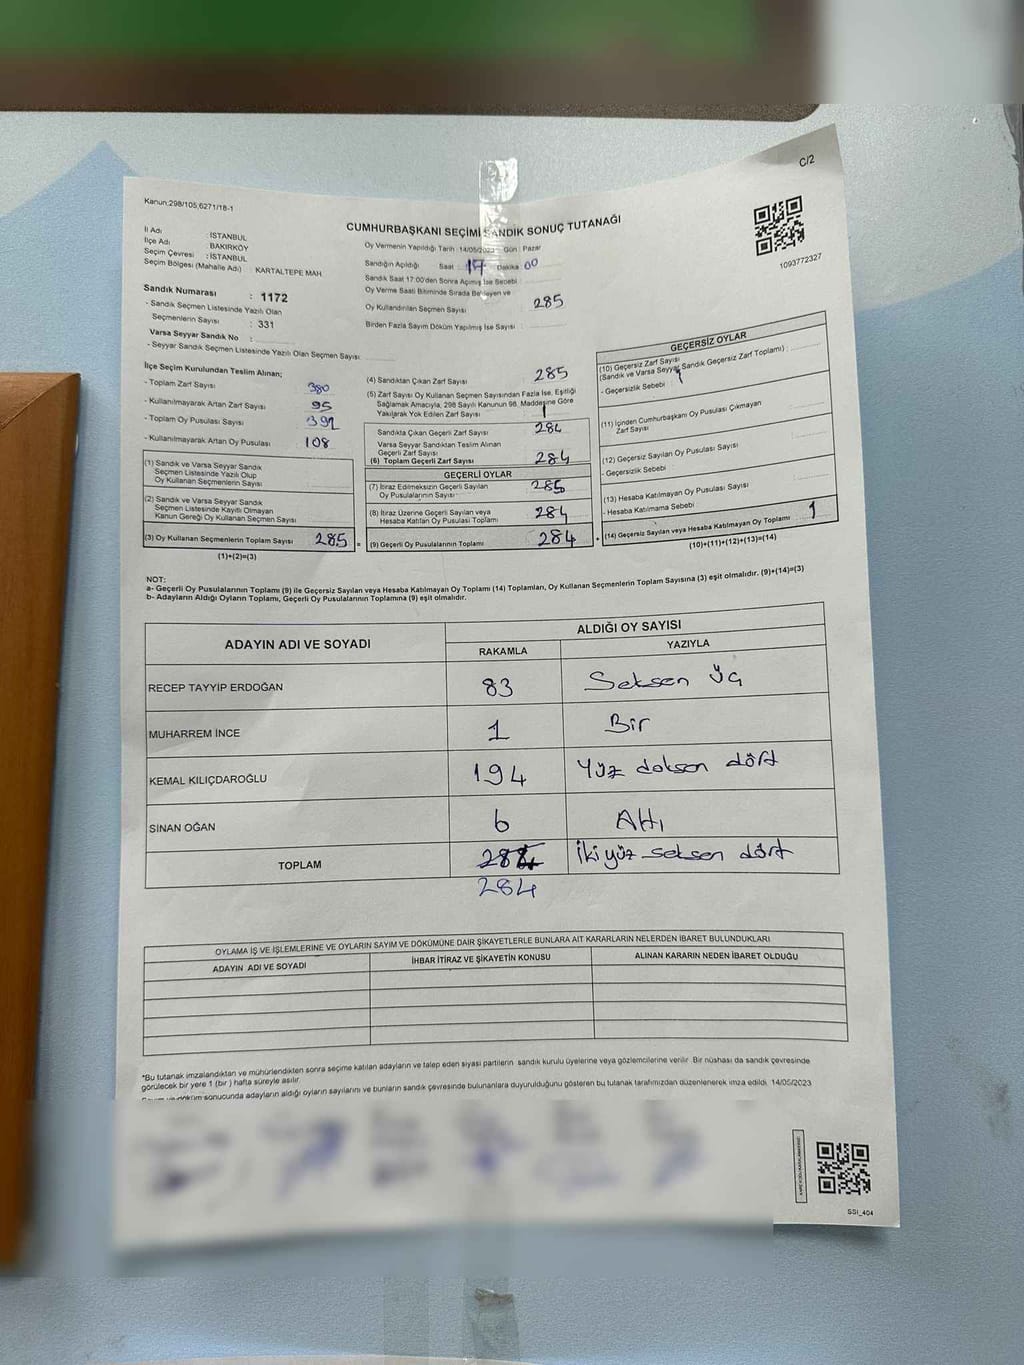 C/2
Kanun:298/105,6271/18-1
CUMHURBAŞKANI SEÇİMİ SANDIK SONUÇ TUTANAĞI
1093772327
İl Adı : İSTANBUL
İlçe Adı : BAKIRKÖY
Seçim Çevresi : İSTANBUL
Seçim Bölgesi (Mahalle Adı) KARTALTEPE MAH
Oy Vermenin Yapıldığı Tarih :14/05/2023 Gün : Pazar
Sandığın Açıldığı Saat : 17 Dakika 00
Sandık Saat 17:00'den Sonra Açılmış İse Sebebi :
Oy Verme Saati Bitiminde Sırada Bekleyen ve
Oy Kullandırılan Seçmen Sayısı 285
Birden Fazla Sayım Döküm Yapılmış İse Sayısı :
Sandık Numarası : 1172
- Sandık Seçmen Listesinde Yazılı Olan
Seçmenlerin Sayısı : 331
Varsa Seyyar Sandık No :
- Seyyar Sandık Seçmen Listesinde Yazılı Olan Seçmen Sayısı:
İlçe Seçim Kurulundan Teslim Alınan;
- Toplam Zarf Sayısı 380
- Kullanılmayarak Artan Zarf Sayısı 95
- Toplam Oy Pusulası Sayısı
- Kullanılmayarak Artan Oy Pusulası 108
(1) Sandık ve Varsa Seyyar Sandık
Seçmen Listesinde Yazılı Olup
Oy Kullanan Seçmenlerin Sayısı
(2) Sandık ve Varsa Seyyar Sandık
Seçmen Listesinde Kayıtlı Olmayan
Kanun Gereği Oy Kullanan Seçmen Sayısı
(3) Oy Kullanan Seçmenlerin Toplam Sayısı 285
(1)+(2)=(3)
(4) Sandıktan Çıkan Zarf Sayısı 285
(5) Zarf Sayısı Oy Kullanan Seçmen Sayısından Fazla İse, Eşitliği
Sağlamak Amacıyla, 298 Sayılı Kanunun 98. Maddesine Göre
Yakılarak Yok Edilen Zarf Sayısı 1
Sandıkta Çıkan Geçerli Zarf Sayısı 284
Varsa Seyyar Sandıktan Teslim Alınan
Geçerli Zarf Sayısı
(6) Toplam Geçerli Zarf Sayısı 284
GEÇERLİ OYLAR
(7) İtiraz Edilmeksizin Geçerli Sayılan
Oy Pusulalarının Sayısı 285
(8) İtiraz Üzerine Geçerli Sayılan veya
Hesaba Katılan Oy Pusulası Toplamı 284
= (9) Geçerli Oy Pusulalarının Toplamı 284 +
GEÇERSİZ OYLAR
(10) Geçersiz Zarf Sayısı
(Sandık ve Varsa Seyyar Sandık Geçersiz Zarf Toplamı) :
- Geçersizlik Sebebi : 1
(11) İçinden Cumhurbaşkanı Oy Pusulası Çıkmayan
Zarf Sayısı
(12) Geçersiz Sayılan Oy Pusulası Sayısı
- Geçersizlik Sebebi
(13) Hesaba Katılmayan Oy Pusulası Sayısı
- Hesaba Katılmama Sebebi
(14) Geçersiz Sayılan veya Hesaba Katılmayan Oy Toplamı 1
(10)+(11)+(12)+(13)=(14)
NOT:
a- Geçerli Oy Pusulalarının Toplamı (9) ile Geçersiz Sayılan veya Hesaba Katılmayan Oy Toplamı (14) Toplamları, Oy Kullanan Seçmenlerin Toplam Sayısına (3) eşit olmalıdır. (9)+(14)=(3)
b- Adayların Aldığı Oyların Toplamı, Geçerli Oy Pusulalarının Toplamına (9) eşit olmalıdır.
ADAYIN ADI VE SOYADI ALDIĞI OY SAYISI
RAKAMLA YAZIYLA
RECEP TAYYİP ERDOĞAN 83 Seksen üç
MUHARREM İNCE 1 Bir
KEMAL KILIÇDAROĞLU 194 Yüz doksen dört
SİNAN OĞAN 6 Altı
TOPLAM İki yüz seksen dört
284
OYLAMA İŞ VE İŞLEMLERİNE VE OYLARIN SAYIM VE DÖKÜMÜNE DAİR ŞİKAYETLERLE BUNLARA AİT KARARLARIN NELERDEN İBARET BULUNDUKLARI
ADAYIN ADI VE SOYADI İHBAR İTİRAZ VE ŞİKAYETİN KONUSU ALINAN KARARIN NEDEN İBARET OLDUĞU
*Bu tutanak imzalandıktan ve mühürlendikten sonra seçime katılan adayların ve talep eden siyasi partilerin sandık kurulu üyelerine veya gözlemcilerine verilir. Bir nüshası da sandık çevresinde
görülecek bir yere 1 (bir) hafta süreyle asılır.
Sayım ve döküm sonucunda adayların aldığı oyların sayılarını ve bunların sandık çevresinde bulunanlara duyurulduğunu gösteren bu tutanak tarafımızdan düzenlenerek imza edildi. 14/05/2023
SSI_404